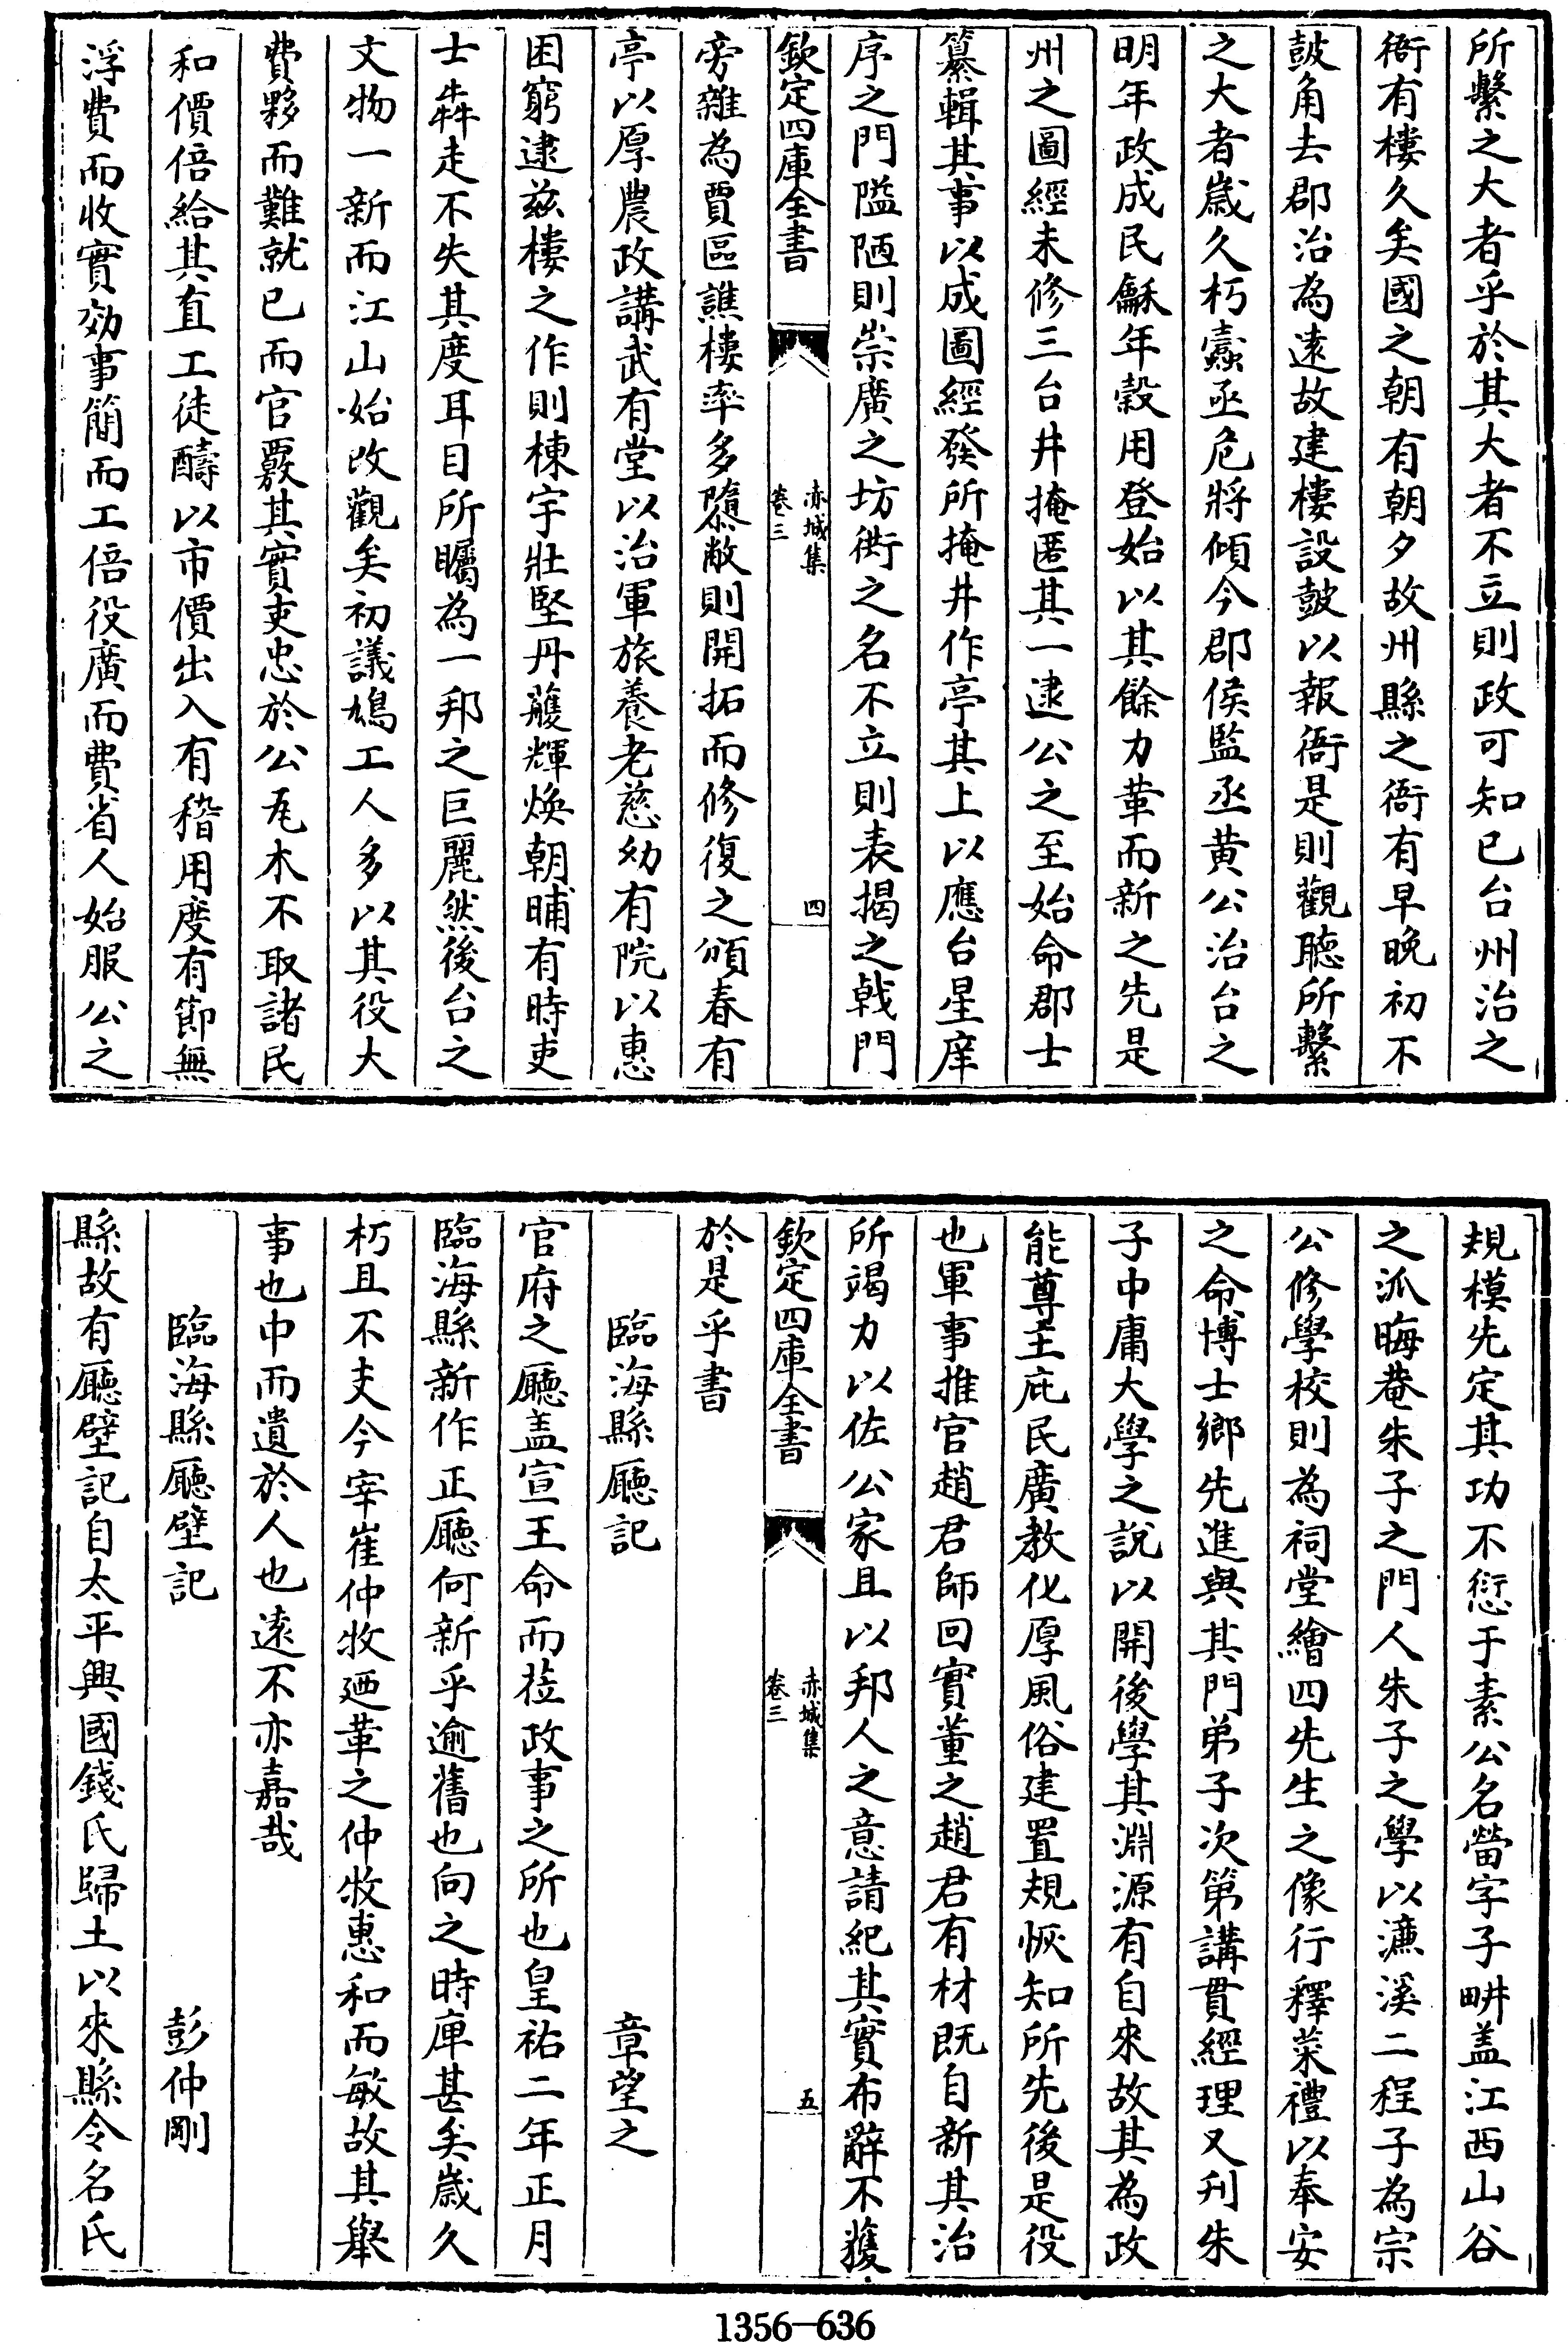 所繫之大者乎於其大者不立則政可知已台州治之
衙有樓久矣國之朝有朝夕故州縣之衙有早晚初不
鼓角去郡治為遠故建樓設鼓以報衙是則觀聽所繫
之大者歲久朽蠹亟危將傾今郡侯監丞黄公治台之
明年政成民龢年穀用登始以其餘力葺而新之先是
州之圖經未修三台井掩匿其一逮公之至始命郡士
纂輯其事以成圖經發所掩井作亭其上以應台星庠
序之門隘陋則崇廣之坊衖之名不立則表揭之戟門
欽定四庫全書
赤城集
卷三
四
旁雜為賈區譙樓率多隳敝則開拓而修復之頒春有
亭以厚農政講武有堂以治軍旅養老慈幼有院以惠
困窮逮兹樓之作則棟宇壯堅丹雘輝煥朝晡有時吏
士犇走不失其度耳目所矚為一邦之巨麗然後台之
文物一新而江山始改觀矣初議鳩工人多以其役大
費夥而難就已而官覈其實吏忠於公瓦木不取諸民
和價倍給其直工徒醻以市價出入有稽用度有節無
浮費而收實効事簡而工倍役廣而費省人始服公之
規模先定其功不愆于素公名㽦字子畊盖江西山谷
之派晦菴朱子之門人朱子之學以濂溪二程子為宗
公修學校則為祠堂繪四先生之像行釋菜禮以奉安
之命博士鄉先進與其門弟子次第講貫經理又刋朱
子中庸大學之說以開後學其淵源有自來故其為政
能尊主庇民廣教化厚風俗建置規恢知所先後是役
也軍事推官趙君師回實董之趙君有材既自新其治
所竭力以佐公家且以邦人之意請紀其實布辭不獲
欽定四庫全書
赤城集
卷三
五
於是乎書
臨海縣廳記 章望之
官府之廳盖宣王命而莅政事之所也皇祐二年正月
臨海縣新作正廳何新乎逾舊也向之時庳甚矣歲久
朽且不支今宰崔仲牧廼革之仲牧惠和而敏故其舉
事也中而遺於人也遠不亦嘉哉
臨海縣廳壁記 彭仲剛
縣故有廳壁記自太平興國錢氏歸土以來縣令名氏
1356—636